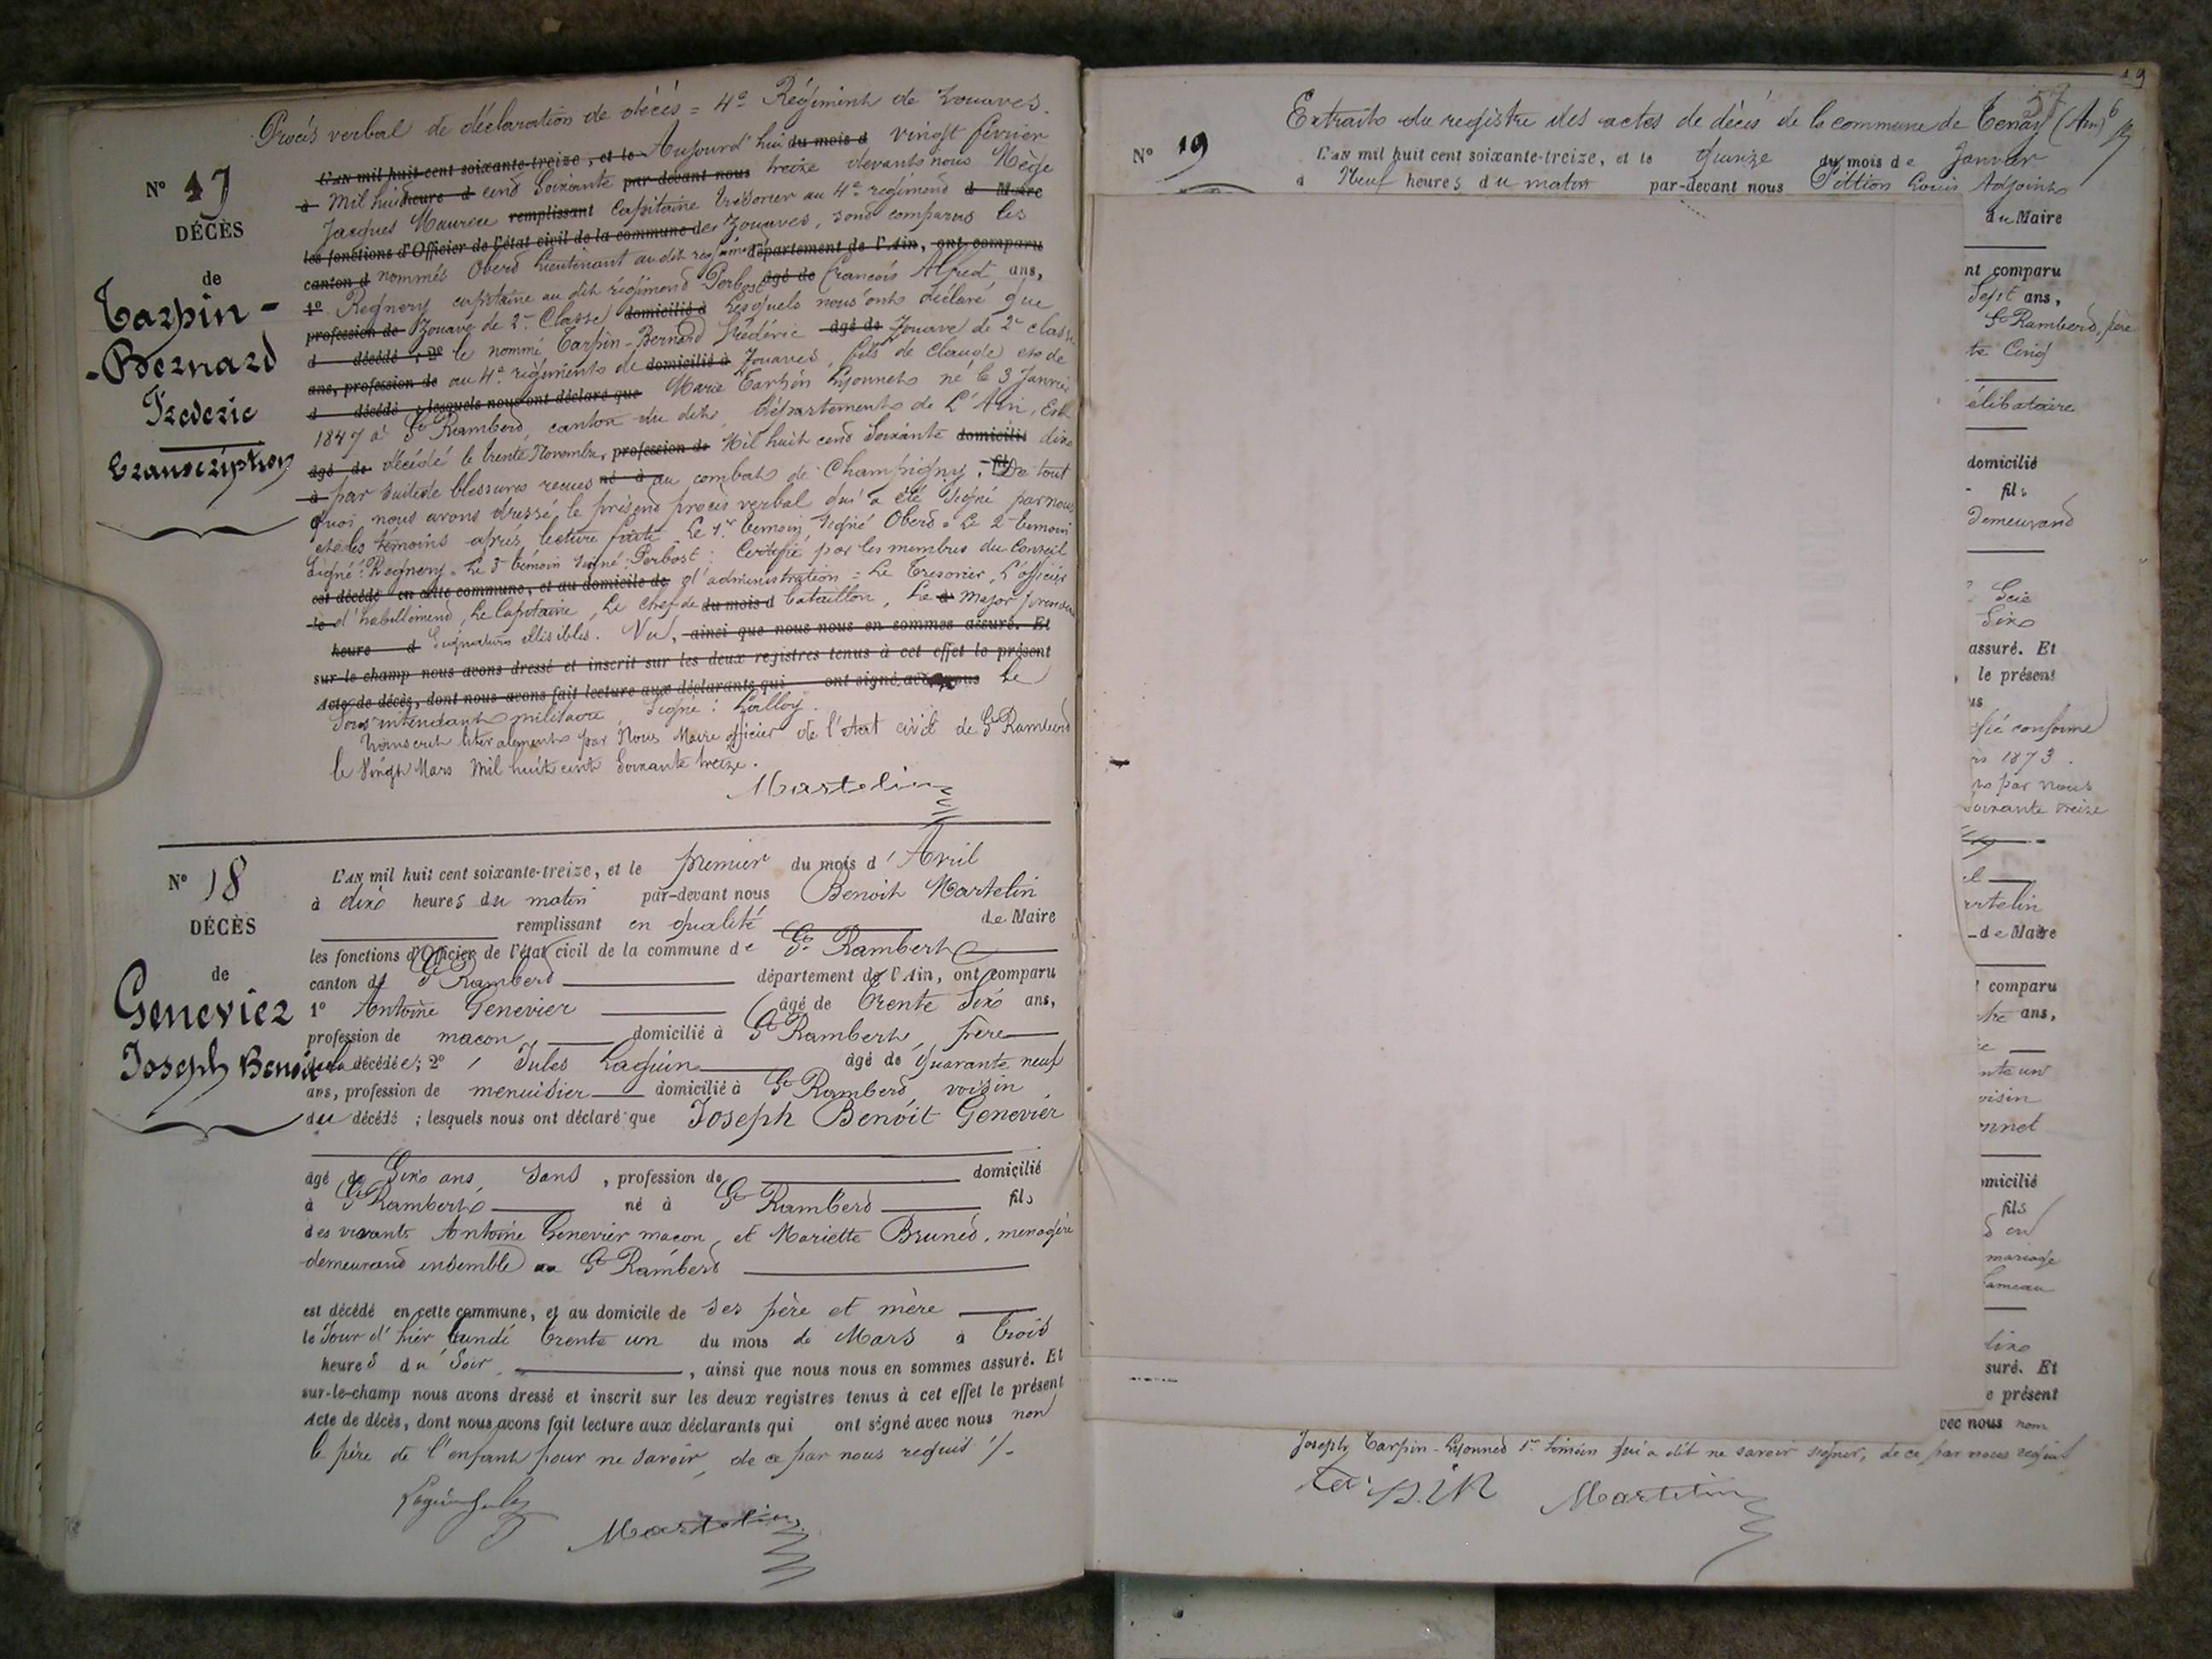 Procès verbal de déclaration de décès = 4e Régiment de Zouaves.
N° 17
DÉCÈS
de
Tarpin-
-Bernard
Frederic
transcription
L'AN mil huit cent soixante-treize, et le Aujourd'hui du mois d vingt fevrier
à Mil huit heure d cent Soixante par-devant nous treize devant nous Mège
Jacques Maurice remplissant Capitaine trésorier au 4e régiment d Maire
les fonctions d'Officier de l'état civil de la commune de Zouaves, sont comparus les
canton d nommés Oberd Lieutenant au dit régiment département de l'Ain, ont comparu
1° Regnery capitaine au dit régiment Perbost âgé de francois Alfred ans,
profession de Zouave de 2e Classe domicilié à Lesquels nous ont déclaré que
d décédé ; 2° le nommé Tarpin-Bernard frédéric âgé de Zouave de 2e classe
ans, profession de au 4e régiments de domicilié à Zouaves, fils de Claude et de
d décédé ; lesquels nous ont déclaré que Marie Tarpin Lyonnet né le 3 Janvier
1847 à St Rambert, canton du dit, Département de L'Ain, Est
âgé de décédé le trente Novembre, profession de Mil huit cent Soixante domicilié dix
à par suite de blessures recues né à au combat de Champigny. fil De tout
quoi nous avons dressé le présent procès verbal qui a été signé par nous
et les témoins après lecture faite. Le 1er temoin signé Oberd = Le 2e temoin
Signé: Regnery = Le 3e témoin signé: Perbost: Certifié par les membres du Conseil
est décédé en cette commune, et au domicile de d'administration = Le tresorier, L'officier
le d'habillement, Le Capitaine, Le Chef de du mois d bataillon, Le à Major
heure d Signatures illisibles. Vu, ainsi que nous nous en sommes assuré. Et
sur-le-champ nous avons dressé et inscrit sur les deux registres tenus à cet effet le présent
Acte de décès, dont nous avons fait lecture aux déclarants qui ont signé avec nous Le
Sous intendant militaire, Signé: Lalloy.
Transcrit literalement par Nous Maire officier de l'état civil de St Rambert
le Vingt Mars Mil huit cent Soixante treize.
Martelin
N° 18
DÉCÈS
de
Genevier
Joseph Benoit
L'AN mil huit cent soixante-treize, et le premier du mois d'Avril
à dix heures du matin par-devant nous Benoit Martelin
remplissant en qualité de Maire
les fonctions d'Officier de l'état civil de la commune de St Rambert
canton de St Rambert département de l'Ain, ont comparu
1° Antoine Genevier âgé de trente Six ans,
profession de macon domicilié à St Rambert, frere
du décédé ; 2° Jules Laguin âgé de quarante neuf
ans, profession de menuisier domicilié à St Rambert, voisin
du décédé ; lesquels nous ont déclaré que Joseph Benoit Genevier
âgé de Six ans, Sans, profession de domicilié
à St Rambert né à St Rambert fils
des vivants Antoine Genevier macon, et Mariette Brunet, menagère
demeurant ensemble a St Rambert
est décédé en cette commune, et au domicile de ses père et mère
le Jour d'hier Lundi trente un du mois de Mars à trois
heures du Soir, ainsi que nous nous en sommes assuré. Et
sur-le-champ nous avons dressé et inscrit sur les deux registres tenus à cet effet le présent
Acte de décès, dont nous avons fait lecture aux déclarants qui ont signé avec nous non
le père de l'enfant pour ne savoir, de ce par nous requis /.
Laguin Jules
Martelin
19
57
Extrait du registre des actes de décès de la commune de Tenay (Ain)
N° 19
L'AN mil huit cent soixante-treize, et le Quinze du mois de Janvier
à Neuf heures du matin par-devant nous Pittion Louis Adjoint
du Maire
nt comparu
Sept ans,
St Rambert, père
te Cinq
élibataire
domicilié
fils
Demeurant
Scie
Six
assuré. Et
le présent
us
fié conforme
1873.
par nous
soixante treize
el
rtelin
de Maire
comparu
tre ans,
nte un
oisin
nnet
omicilié
fils
mariage
ameau
dix
suré. Et
e présent
vec nous nom
Joseph Tarpin-Lyonnet 1er témoin qui a dit ne savoir signer, de ce par nous requis
tarpin Martelin